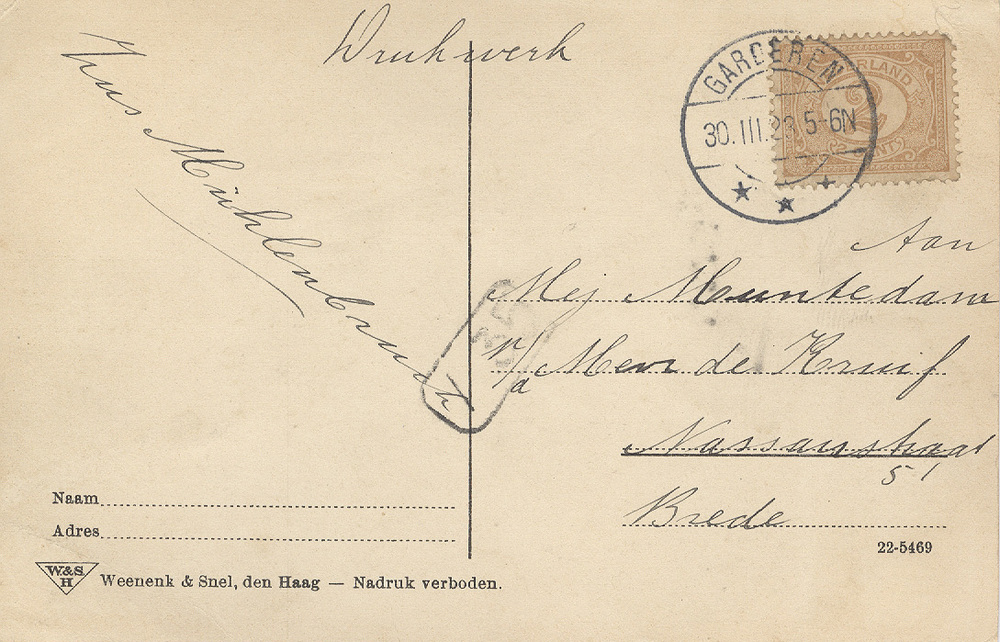 Drukwerk
Mühlenbruch
GARDEREN
30.III.23 5-6N
2
CENT
Aan
Mej Muntedam
p/a Mevr de Kruif
Nassaustraat
51
Brede
22-5469
Naam
Adres
W&S
H
Weenenk & Snel, den Haag — Nadruk verboden.